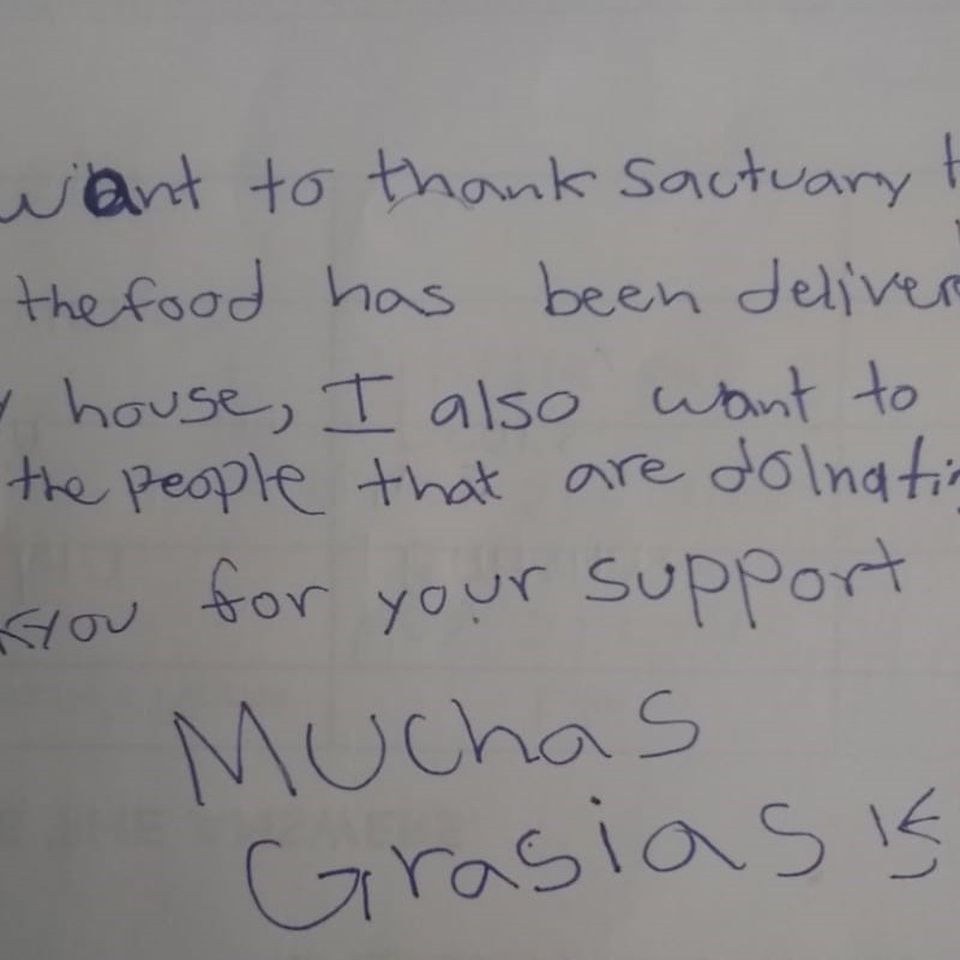 want to thank Sactuary t
the food has been deliver
y house, I also want to
the people that are dolnatin
kyou for your support
Muchas
Grasias